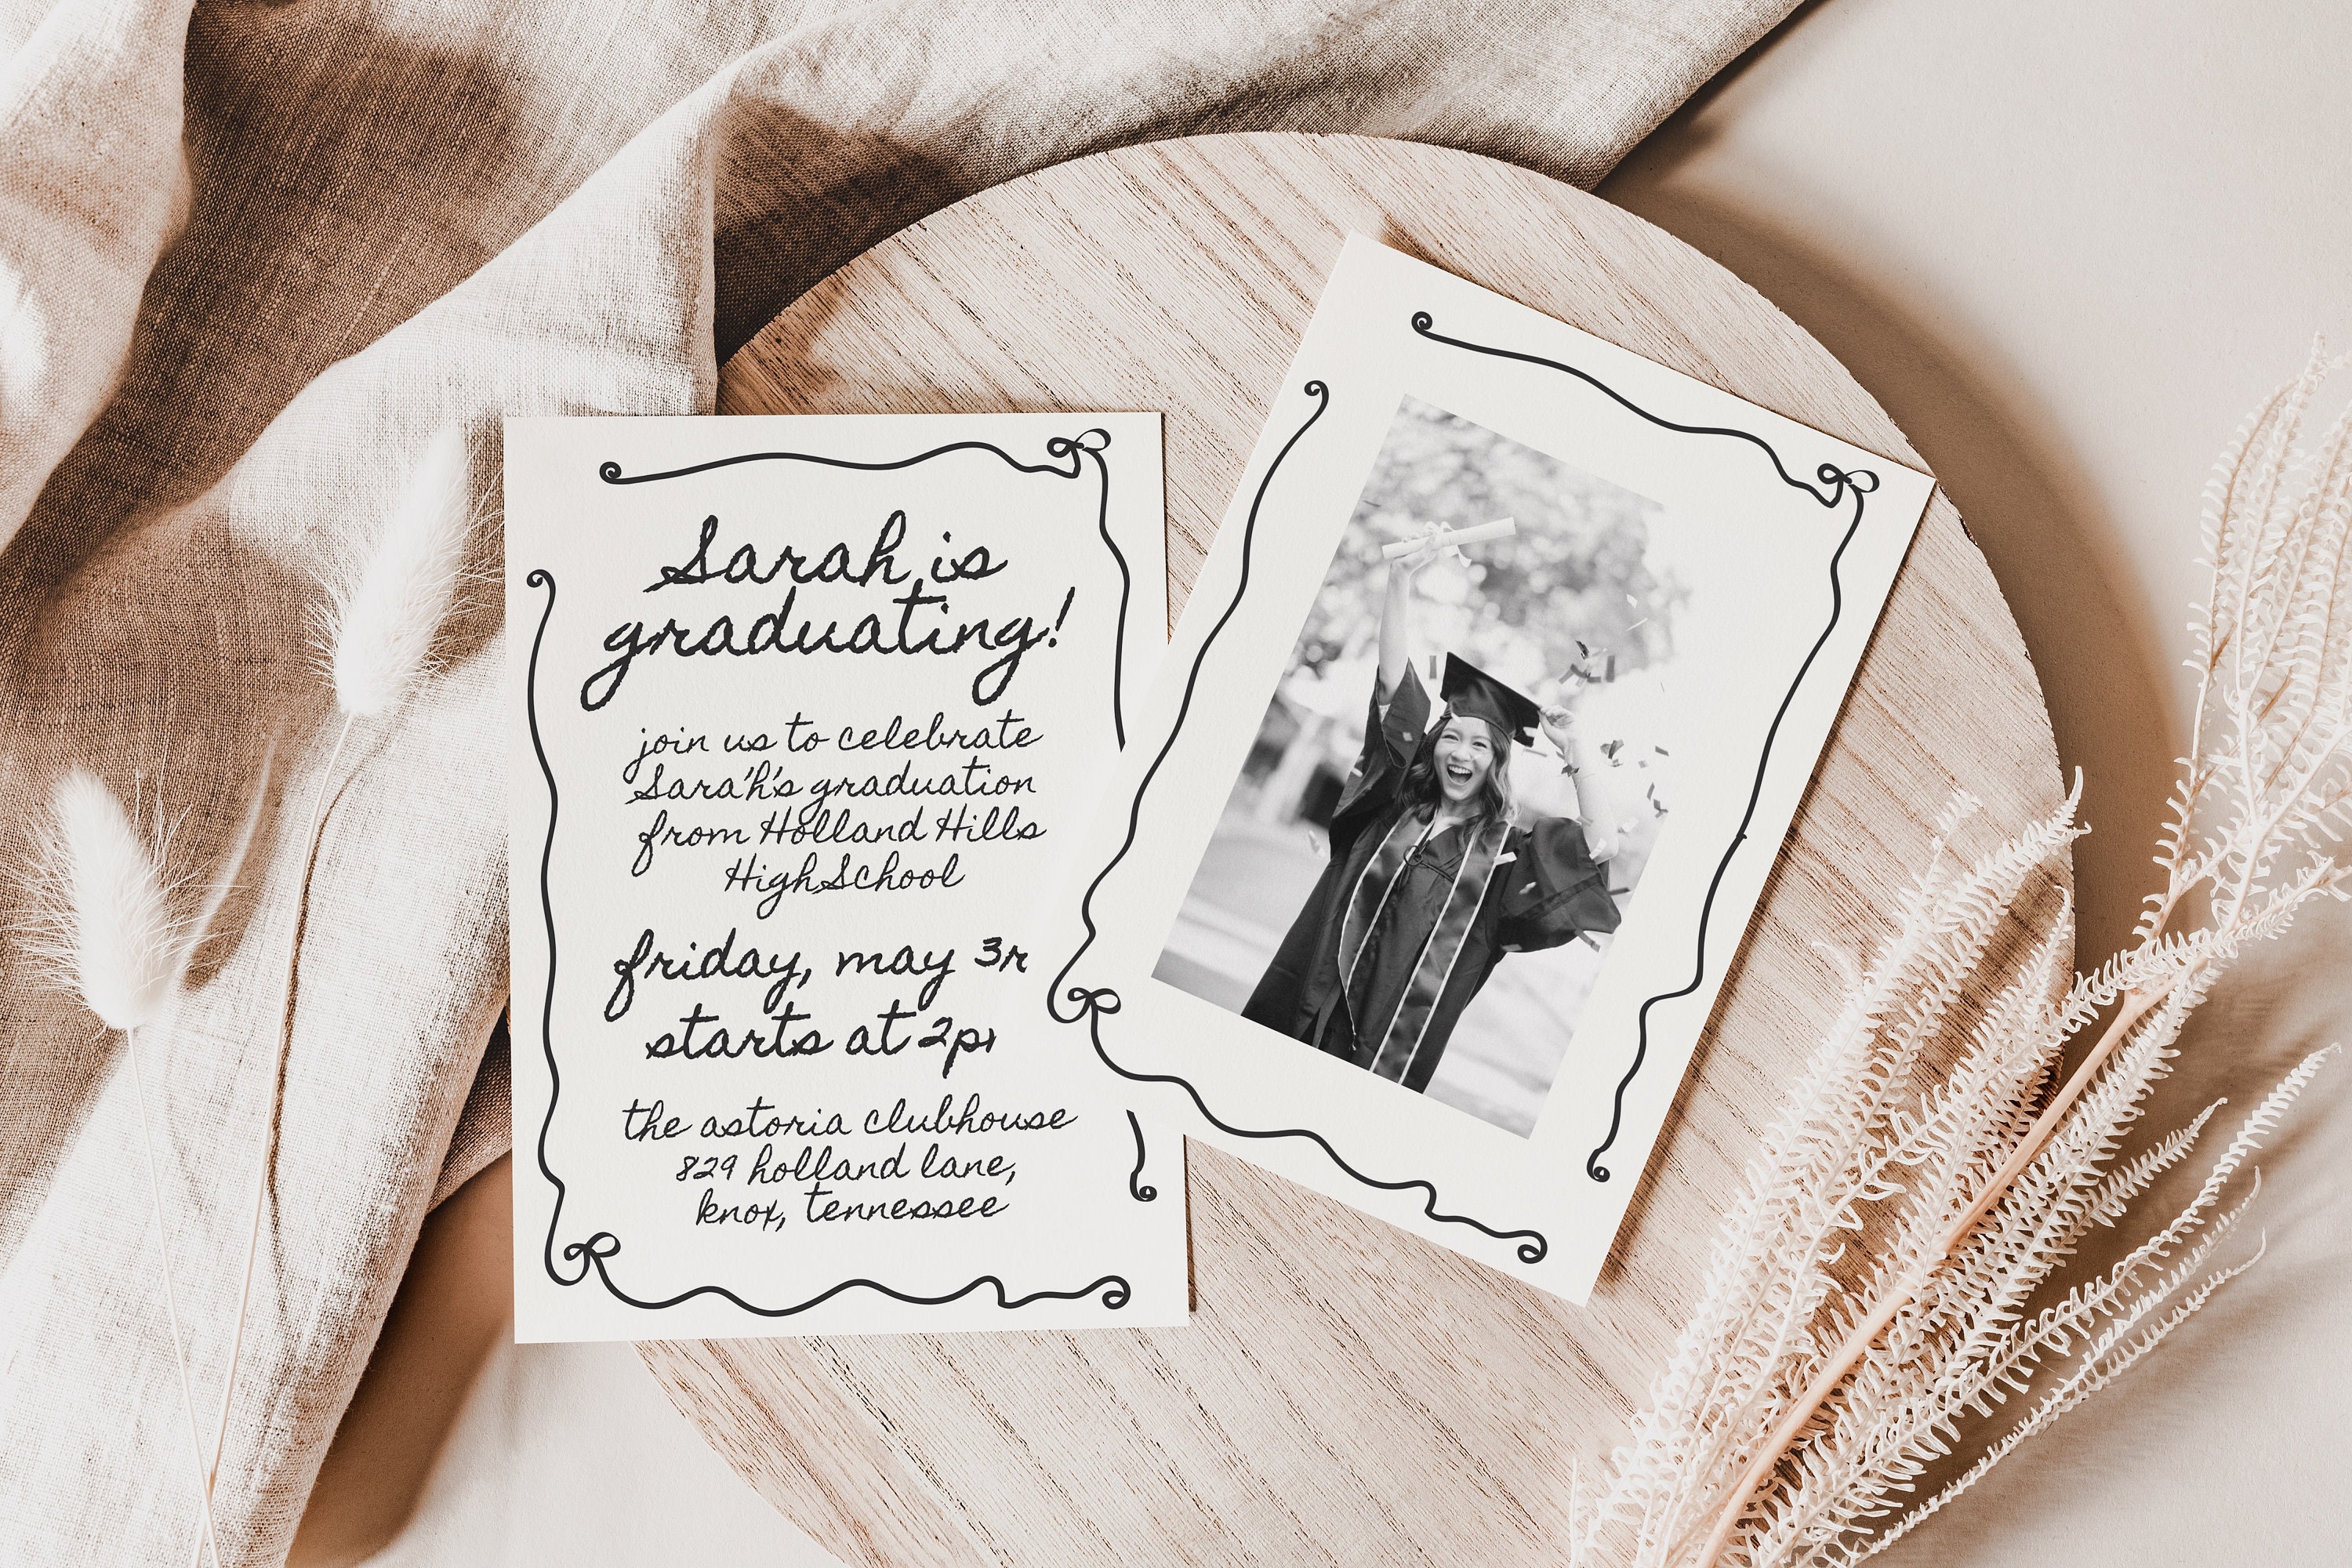 Sarah is
graduating!
join us to celebrate
Sarah's graduation
from Holland Hills
High School
friday, may 3r
starts at 2p
the astoria clubhouse
829 holland lane,
knox, tennessee